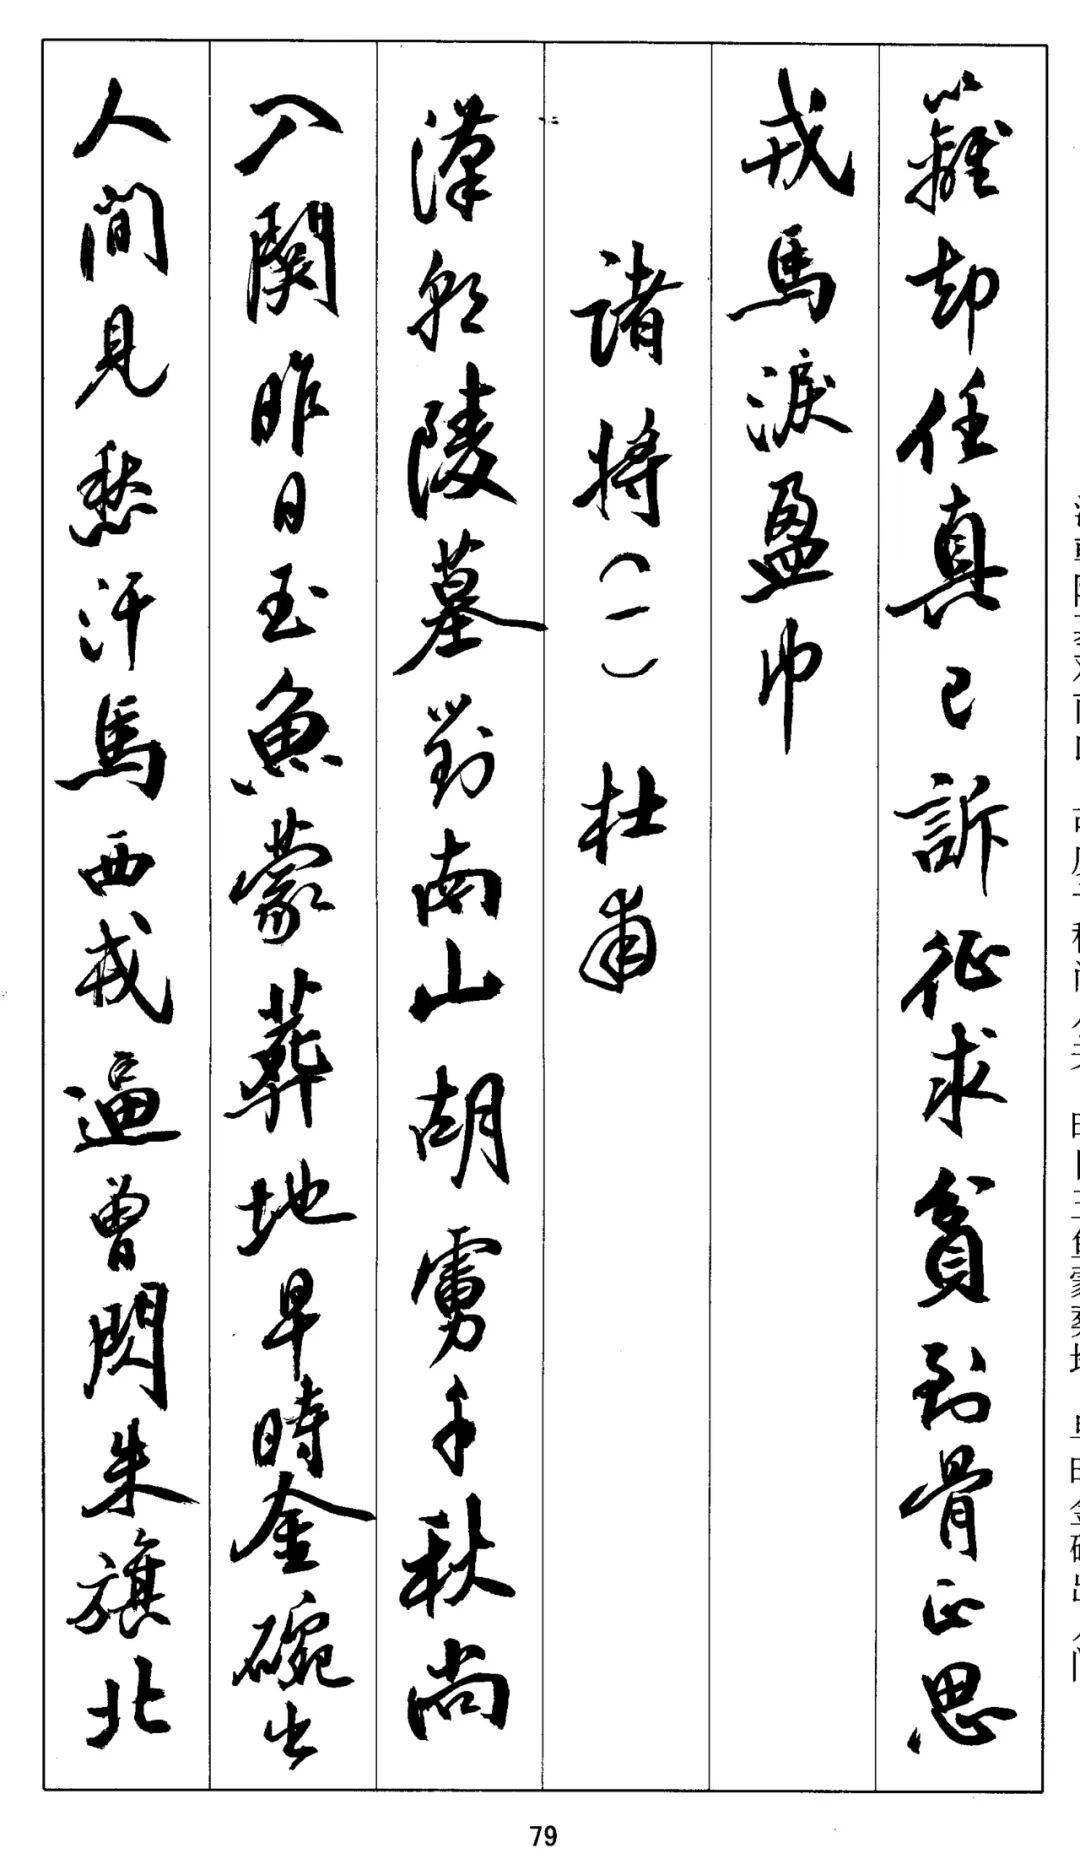 籬却任真已訴征求貧到骨正思
戎馬淚盈巾
諸將(一) 杜甫
漢朝陵墓對南山胡虜千秋尚
入關昨日玉魚蒙葬地早時金碗出
人間見愁汗馬西戎逼曾閃朱旗北
79